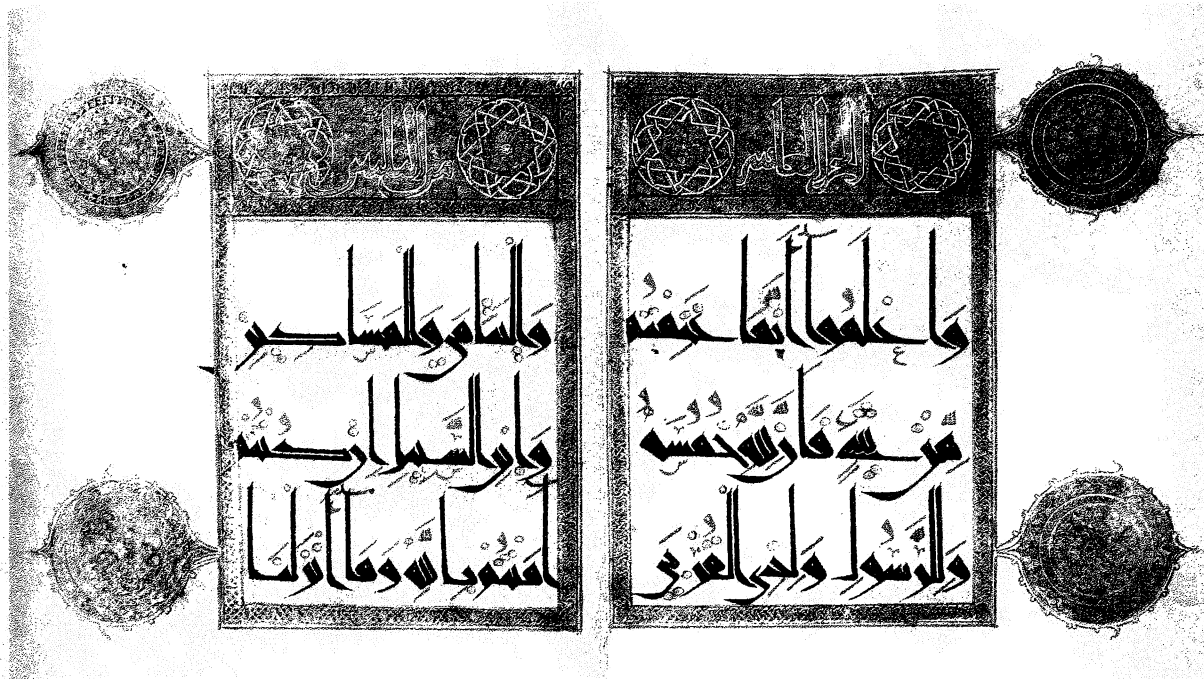 الجزء العاشر
واعلموا أنما غنمتم
من شيء فأن لله خمسه
وللرسول ولذي القربى
من الثلثين
واليتامى والمساكين
وابن السبيل إن كنتم
آمنتم بالله وما أنزلنا